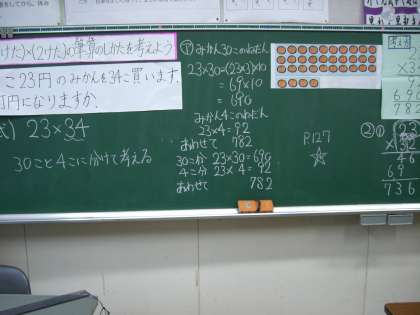 けた)×(2けた)の筆算のしかたを考えよう
こ23円のみかんを34こ買います。
円になりますか。
式) 23×34
30こと4こに分けて考える
① みかん30このねだん
23×30=(23×3)×10
=69×10
=690
みかん4このねだん
23×4=92
あわせて 782
30こ分 23×30=690
4こ分 23×4=92
あわせて 782
P127
☆
考え方
690
②①
23
×32
46
69
736